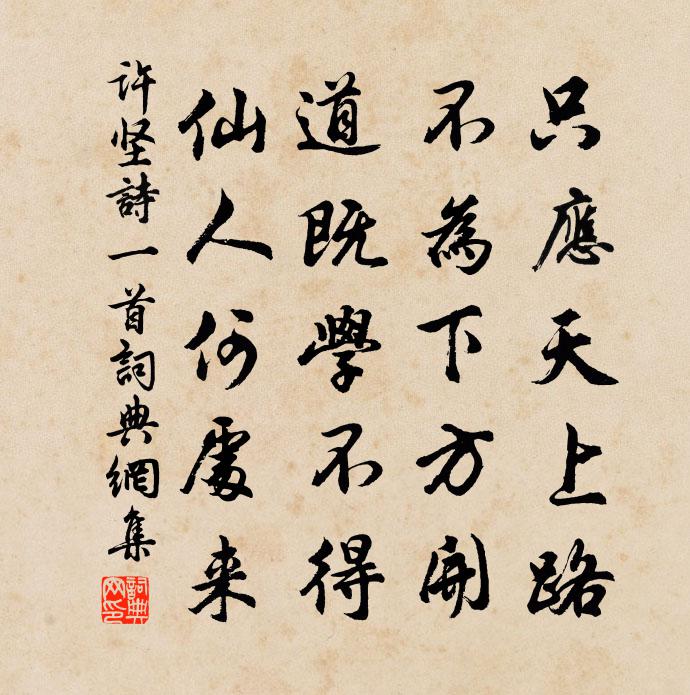 只應天上路
不為下方開
道既學不得
仙人何處来
许坚詩一首詞典網集
詞典